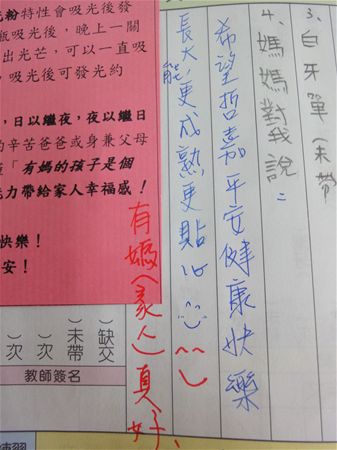 3、白牙單(未帶
4、媽媽對我說：
希望哲嘉平安健康快樂
長大能更成熟更貼心
有媽(家人)真好、
光粉特性會吸光後發
瓶吸光後，晚上一關
出光芒，可以一直吸
吸光後可發光約
，日以繼夜，夜以繼日
的辛苦爸爸或身兼父母
「有媽的孩子是個
力帶給家人幸福感！
快樂！
安！
）缺交
）未帶
）次
）次
教師簽名